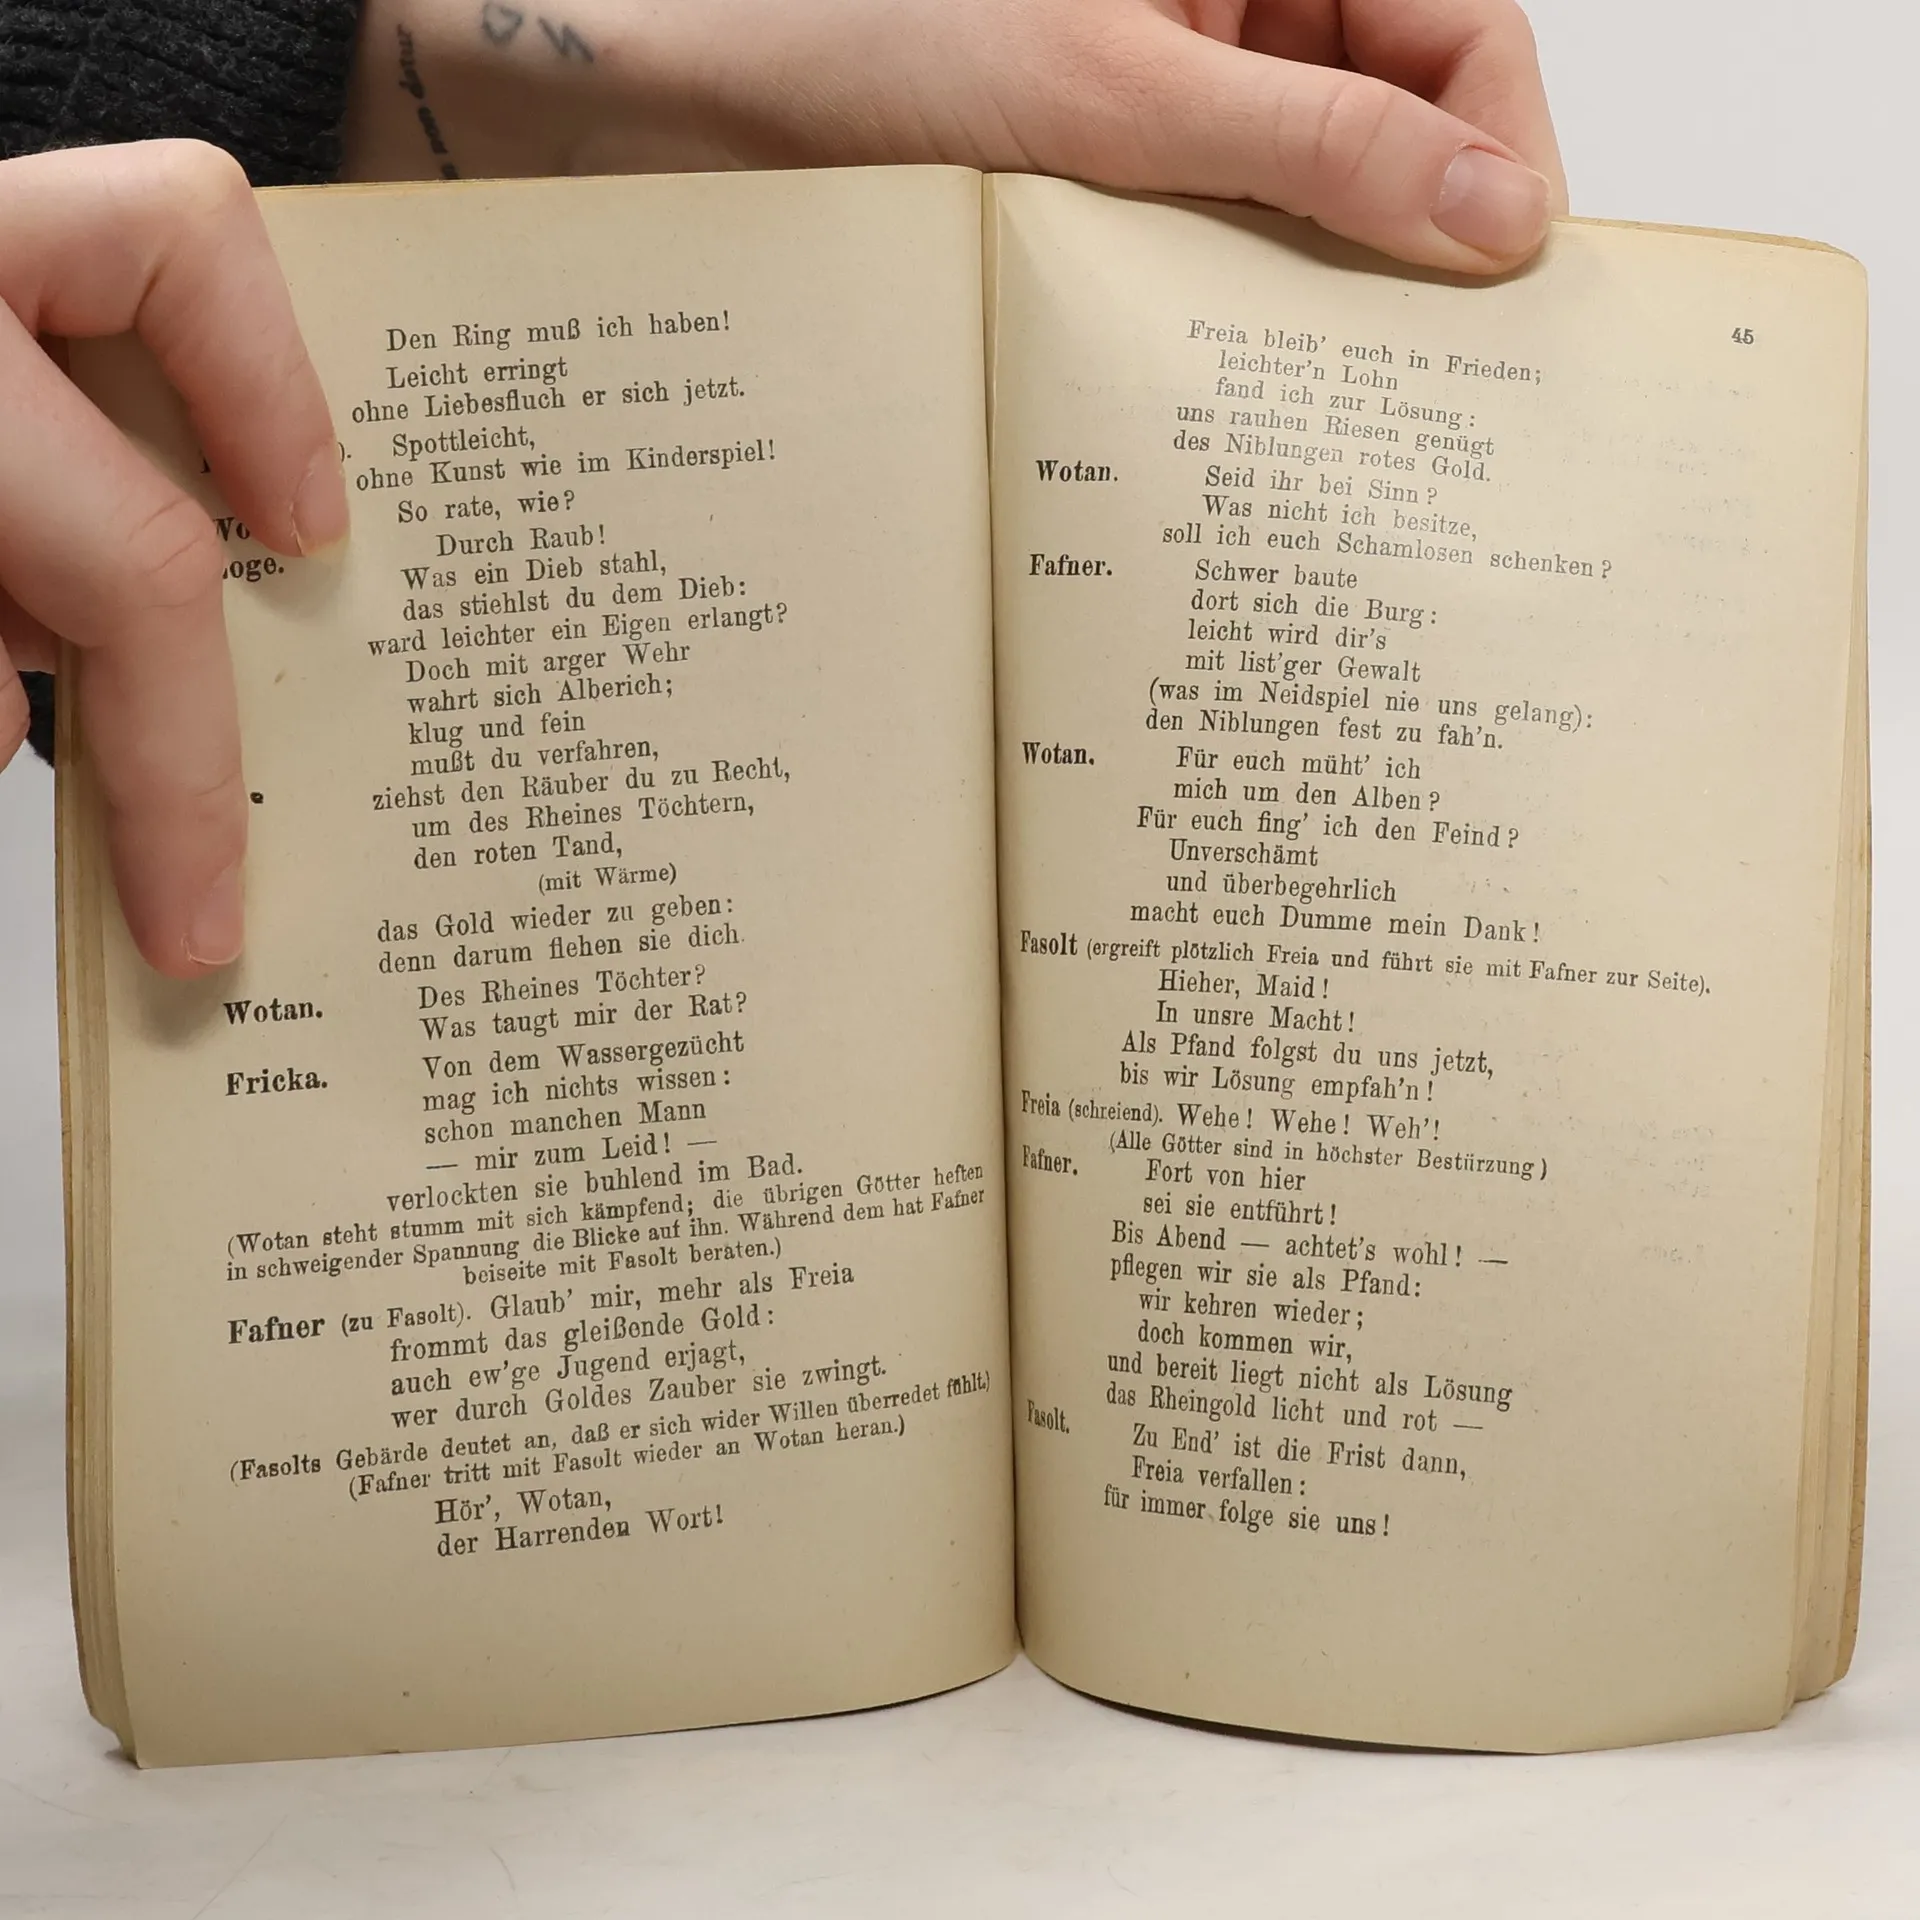 non datur
Den Ring muß ich haben!
Leicht erringt
ohne Liebesfluch er sich jetzt.
). Spottleicht,
ohne Kunst wie im Kinderspiel!
Wo
So rate, wie?
oge. Durch Raub!
Was ein Dieb stahl,
das stiehlst du dem Dieb:
ward leichter ein Eigen erlangt?
Doch mit arger Wehr
wahrt sich Alberich;
klug und fein
mußt du verfahren,
ziehst den Räuber du zu Recht,
um des Rheines Töchtern,
den roten Tand,
(mit Wärme)
das Gold wieder zu geben:
denn darum flehen sie dich.
Wotan. Des Rheines Töchter?
Was taugt mir der Rat?
Fricka. Von dem Wassergezücht
mag ich nichts wissen:
schon manchen Mann
— mir zum Leid! —
verlockten sie buhlend im Bad.
(Wotan steht stumm mit sich kämpfend; die übrigen Götter heften
in schweigender Spannung die Blicke auf ihn. Während dem hat Fafner
beiseite mit Fasolt beraten.)
Fafner (zu Fasolt). Glaub' mir, mehr als Freia
frommt das gleißende Gold:
auch ew'ge Jugend erjagt,
wer durch Goldes Zauber sie zwingt.
(Fasolts Gebärde deutet an, daß er sich wider Willen überredet fühlt.)
(Fafner tritt mit Fasolt wieder an Wotan heran.)
Hör', Wotan,
der Harrenden Wort!
45
Freia bleib' euch in Frieden;
leichter'n Lohn
fand ich zur Lösung:
uns rauhen Riesen genügt
des Niblungen rotes Gold.
Wotan. Seid ihr bei Sinn?
Was nicht ich besitze,
soll ich euch Schamlosen schenken?
Fafner. Schwer baute
dort sich die Burg:
leicht wird dir's
mit list'ger Gewalt
(was im Neidspiel nie uns gelang):
den Niblungen fest zu fah'n.
Wotan. Für euch müht' ich
mich um den Alben?
Für euch fing' ich den Feind?
Unverschämt
und überbegehrlich
macht euch Dumme mein Dank!
Fasolt (ergreift plötzlich Freia und führt sie mit Fafner zur Seite).
Hieher, Maid!
In unsre Macht!
Als Pfand folgst du uns jetzt,
bis wir Lösung empfah'n!
Freia (schreiend). Wehe! Wehe! Weh'!
(Alle Götter sind in höchster Bestürzung)
Fafner. Fort von hier
sei sie entführt!
Bis Abend — achtet's wohl! —
pflegen wir sie als Pfand:
wir kehren wieder;
doch kommen wir,
und bereit liegt nicht als Lösung
das Rheingold licht und rot —
Fasolt. Zu End' ist die Frist dann,
Freia verfallen:
für immer folge sie uns!